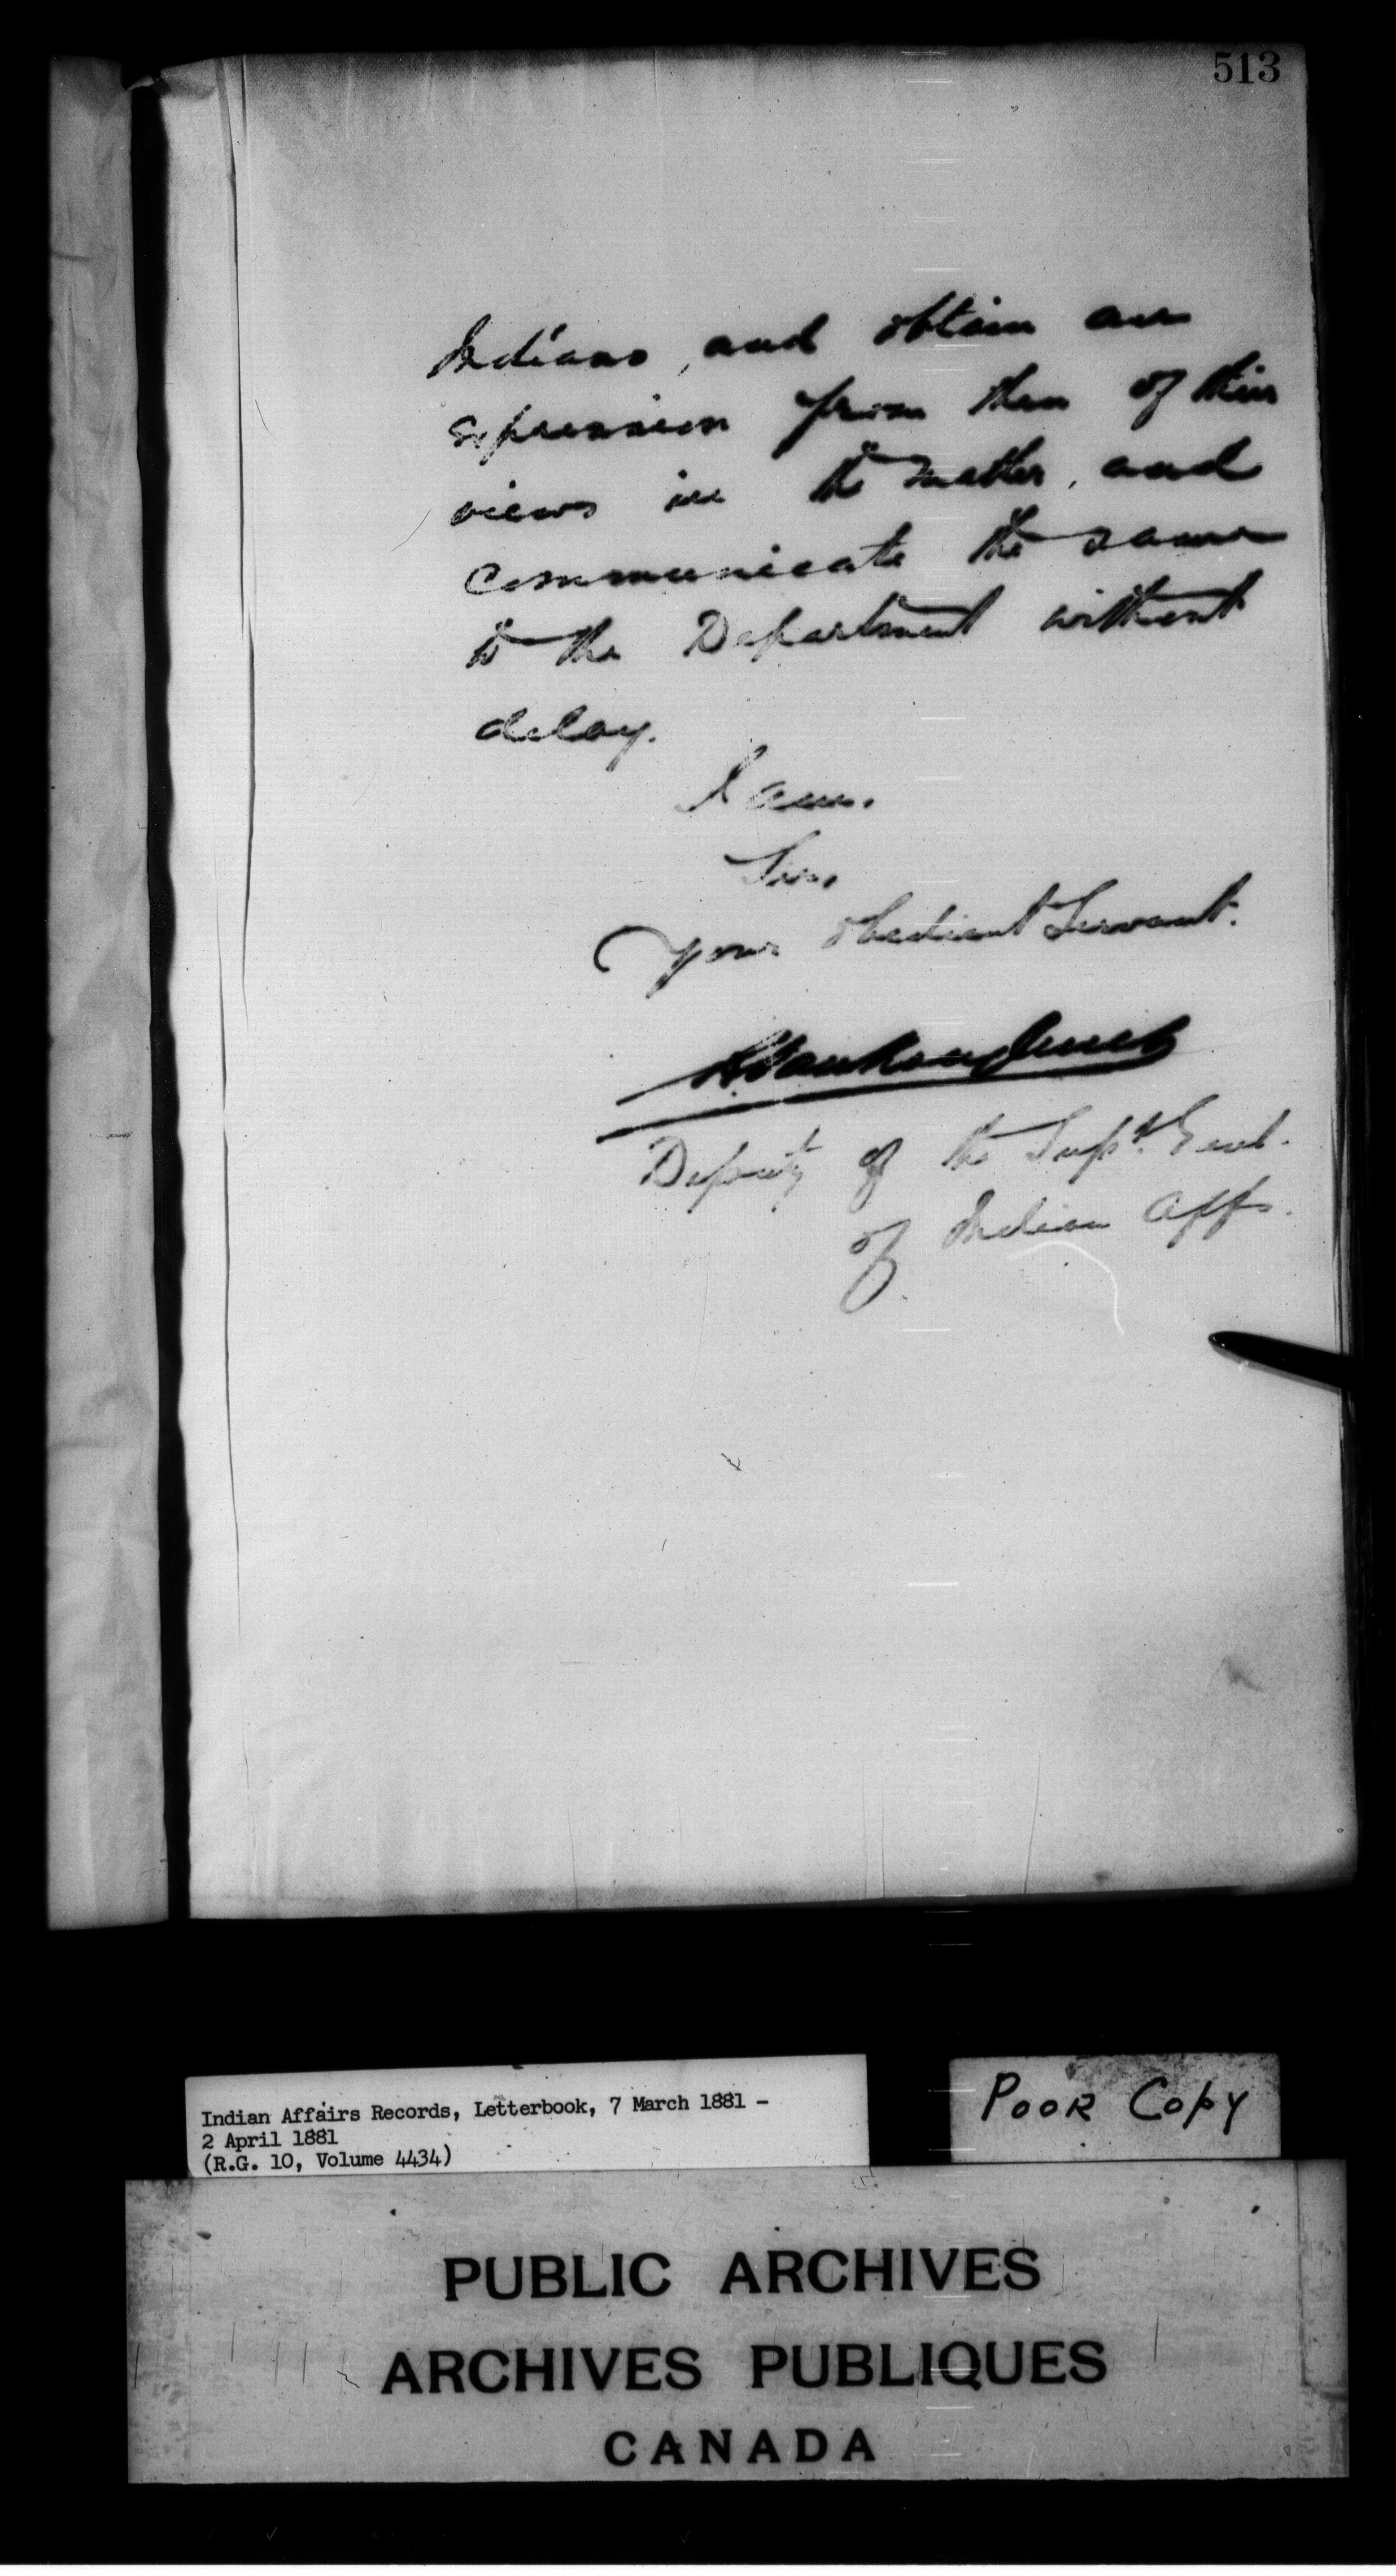 513
Indians, and obtain an
expression from them of their
views in the matter, and
communicate the same
to the Department without
delay.
I am,
Sir,
Your obedient Servant.
L. Vankoughnet
Deputy of the Supt. Genl.
of Indian Affs.
Indian Affairs Records, Letterbook, 7 March 1881 -
2 April 1881
(R.G. 10, Volume 4434)
POOR COPY
PUBLIC ARCHIVES
ARCHIVES PUBLIQUES
CANADA